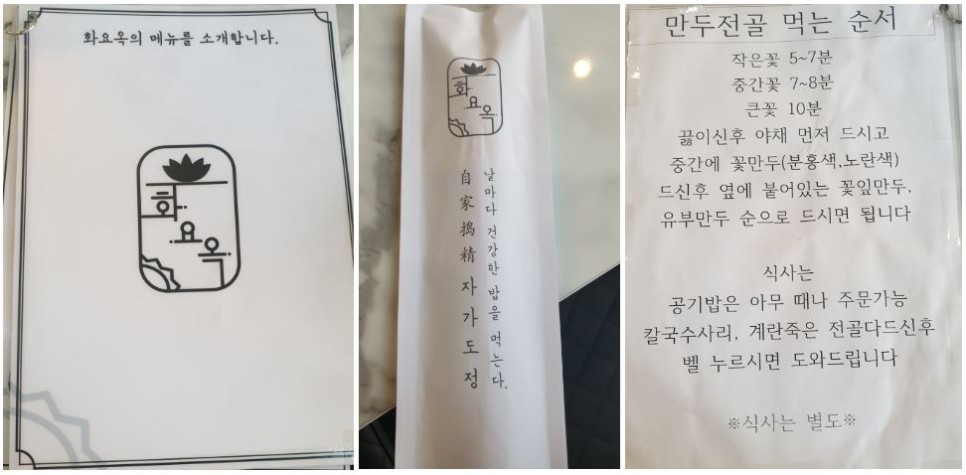 화요옥의 메뉴를 소개합니다.
화요옥
화요옥
날마다 건강한 밥을 먹는다.
自家搗精 자가도정
만두전골 먹는 순서
작은꽃 5~7분
중간꽃 7~8분
큰꽃 10분
끓이신후 야채 먼저 드시고
중간에 꽃만두(분홍색,노란색)
드신후 옆에 붙어있는 꽃잎만두,
유부만두 순으로 드시면 됩니다
식사는
공기밥은 아무 때나 주문가능
칼국수사리, 계란죽은 전골다드신후
벨 누르시면 도와드립니다
※식사는 별도※